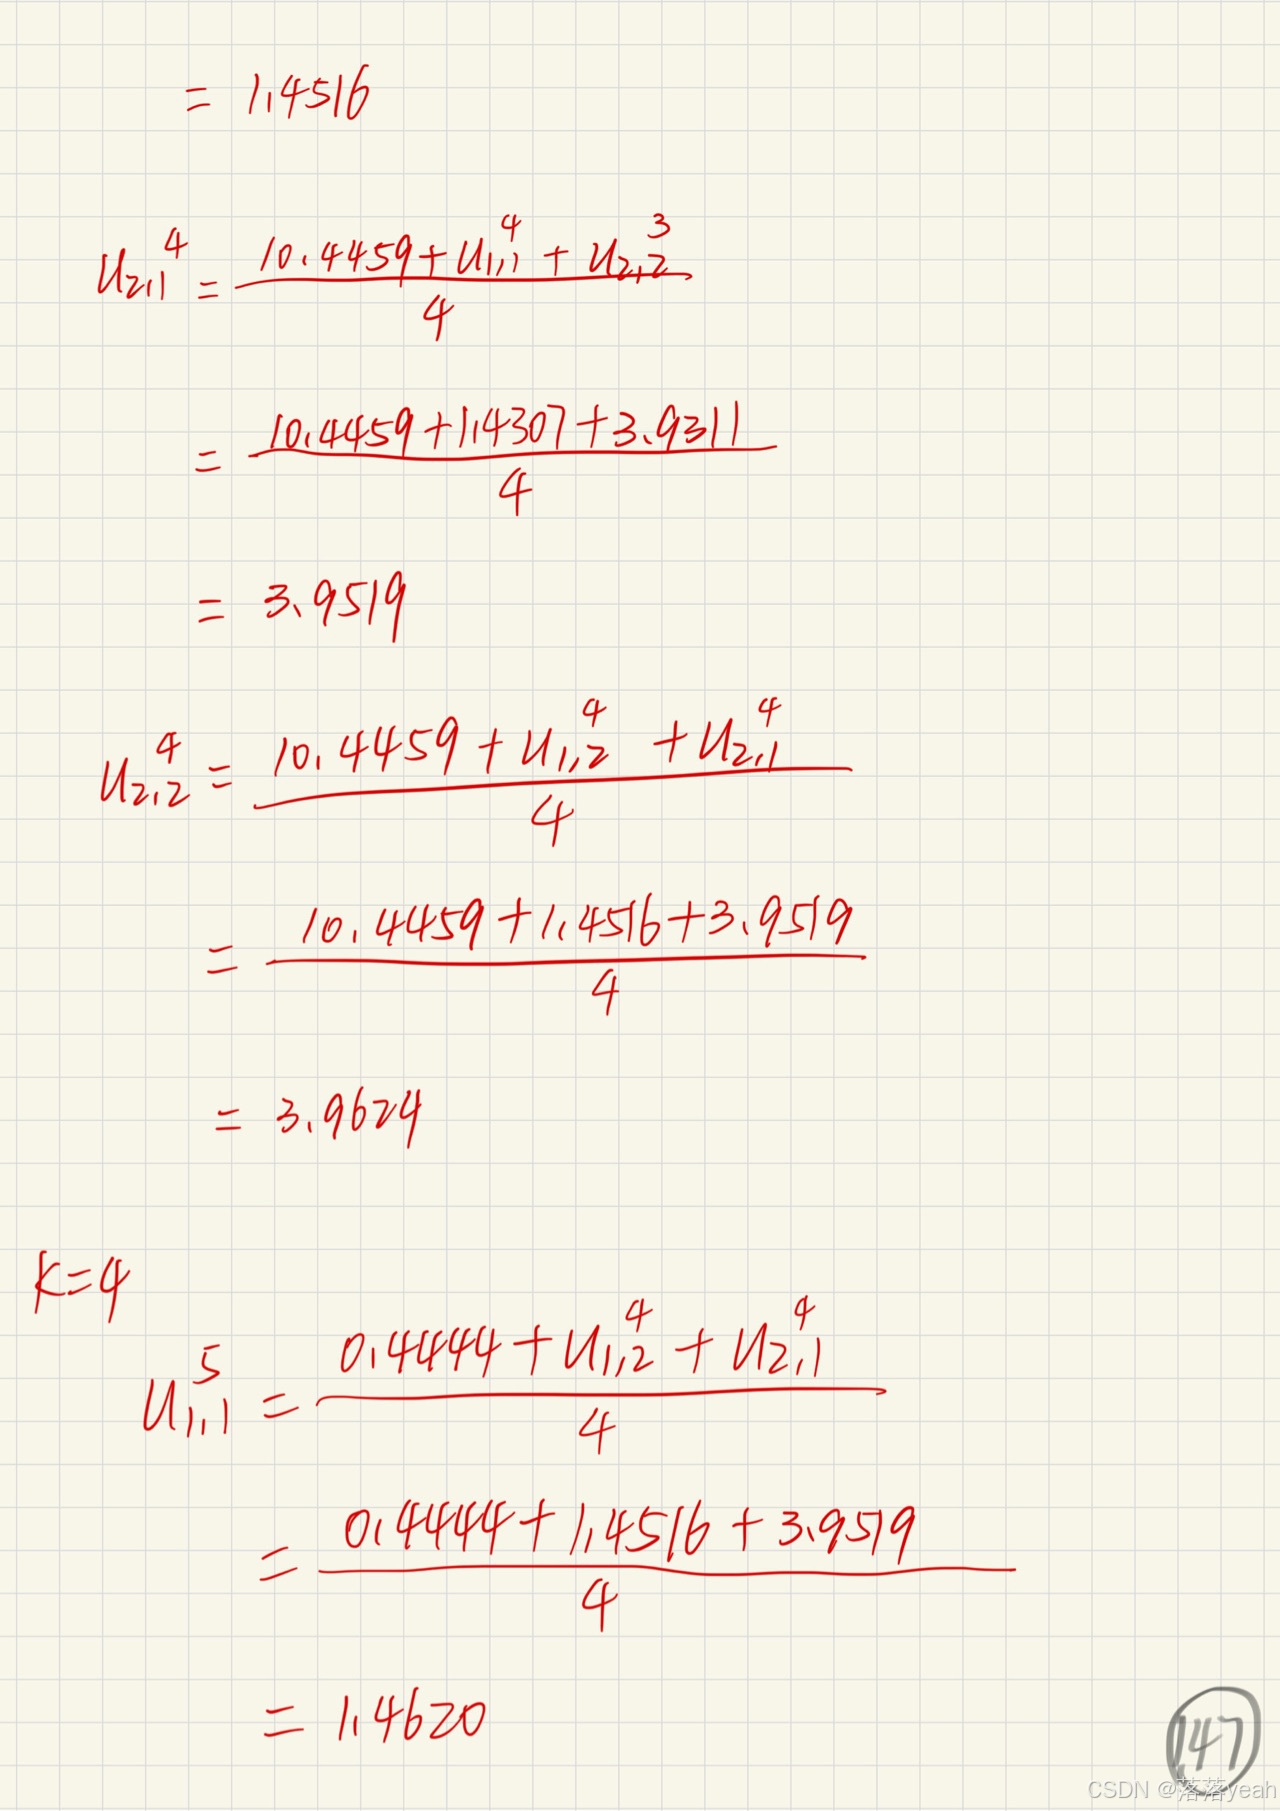 = 1.4516
u₂,₁⁴ = (10.4459 + u₁,₁⁴ + u₂,₂³) / 4
= (10.4459 + 1.4307 + 3.9311) / 4
= 3.9519
u₂,₂⁴ = (10.4459 + u₁,₂⁴ + u₂,₁⁴) / 4
= (10.4459 + 1.4516 + 3.9519) / 4
= 3.9624
K=4
u₁,₁⁵ = (0.4444 + u₁,₂⁴ + u₂,₁⁴) / 4
= (0.4444 + 1.4516 + 3.9519) / 4
= 1.4620
147
CSDN @落落yeah